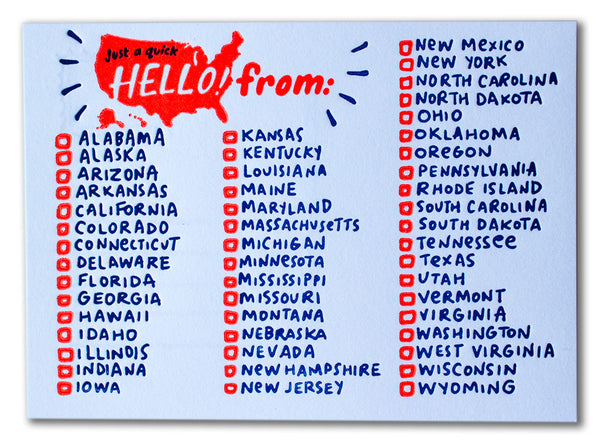 Just a quick
HELLO! from:
ALABAMA
ALASKA
ARIZONA
ARKANSAS
CALIFORNIA
COLORADO
CONNECTICUT
DELAWARE
FLORIDA
GEORGIA
HAWAII
IDAHO
ILLINOIS
INDIANA
IOWA
KANSAS
KENTUCKY
LOUISIANA
MAINE
MARYLAND
MASSACHUSETTS
MICHIGAN
MINNESOTA
MISSISSIPPI
MISSOURI
MONTANA
NEBRASKA
NEVADA
NEW HAMPSHIRE
NEW JERSEY
NEW MEXICO
NEW YORK
NORTH CAROLINA
NORTH DAKOTA
OHIO
OKLAHOMA
OREGON
PENNSYLVANIA
RHODE ISLAND
SOUTH CAROLINA
SOUTH DAKOTA
TENNESSEE
TEXAS
UTAH
VERMONT
VIRGINIA
WASHINGTON
WEST VIRGINIA
WISCONSIN
WYOMING